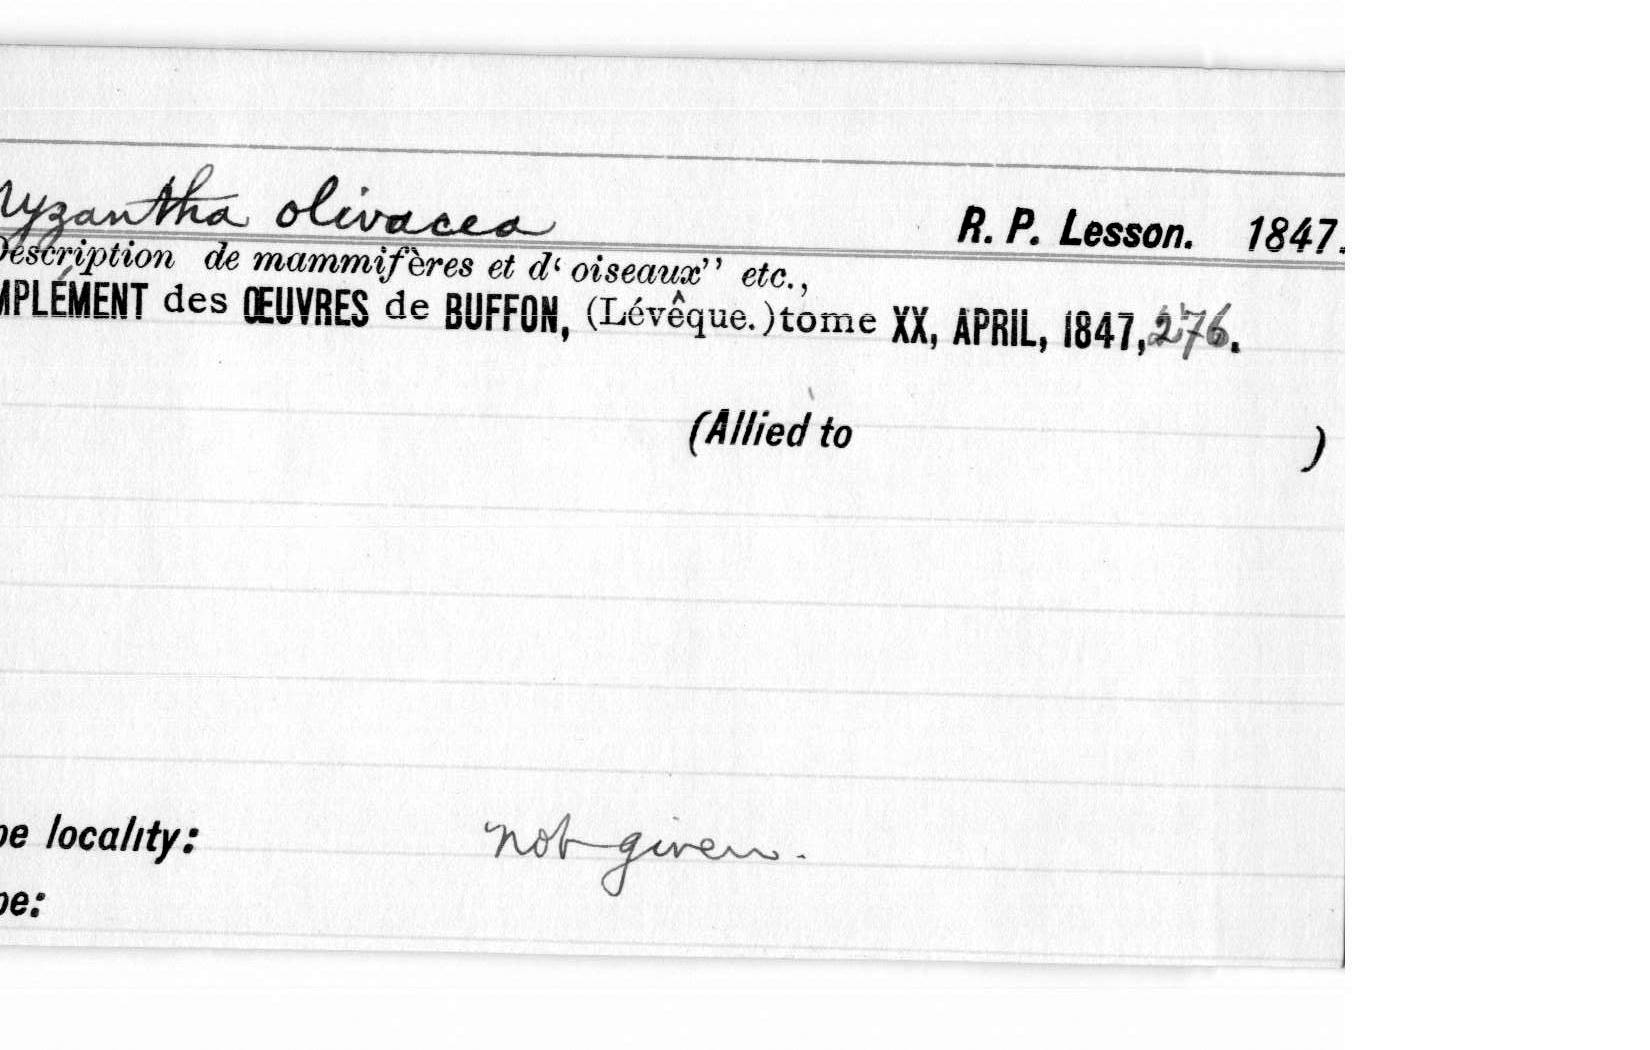 Myzantha olivacea R. P. Lesson. 1847.
Description de mammifères et d‘ oiseaux” etc.,
MPLÉMENT des ŒUVRES de BUFFON, (Lévêque.) tome XX, APRIL, 1847, 276.
(Allied to )
pe locality: not given.
pe: